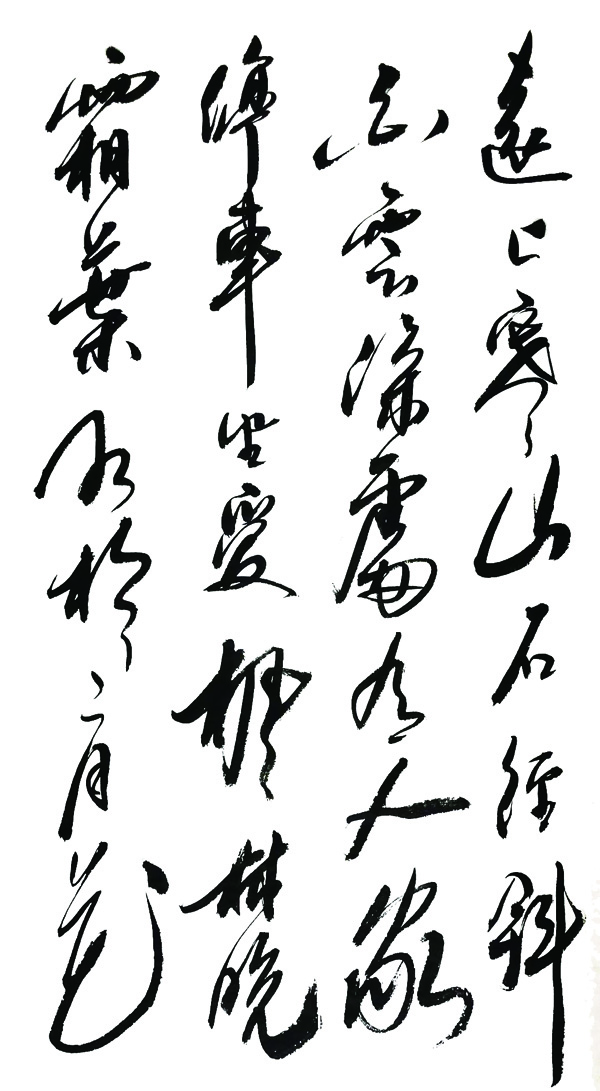 遠上寒山石徑斜
白雲深處有人家
停車坐愛楓林晚
霜葉紅於二月花